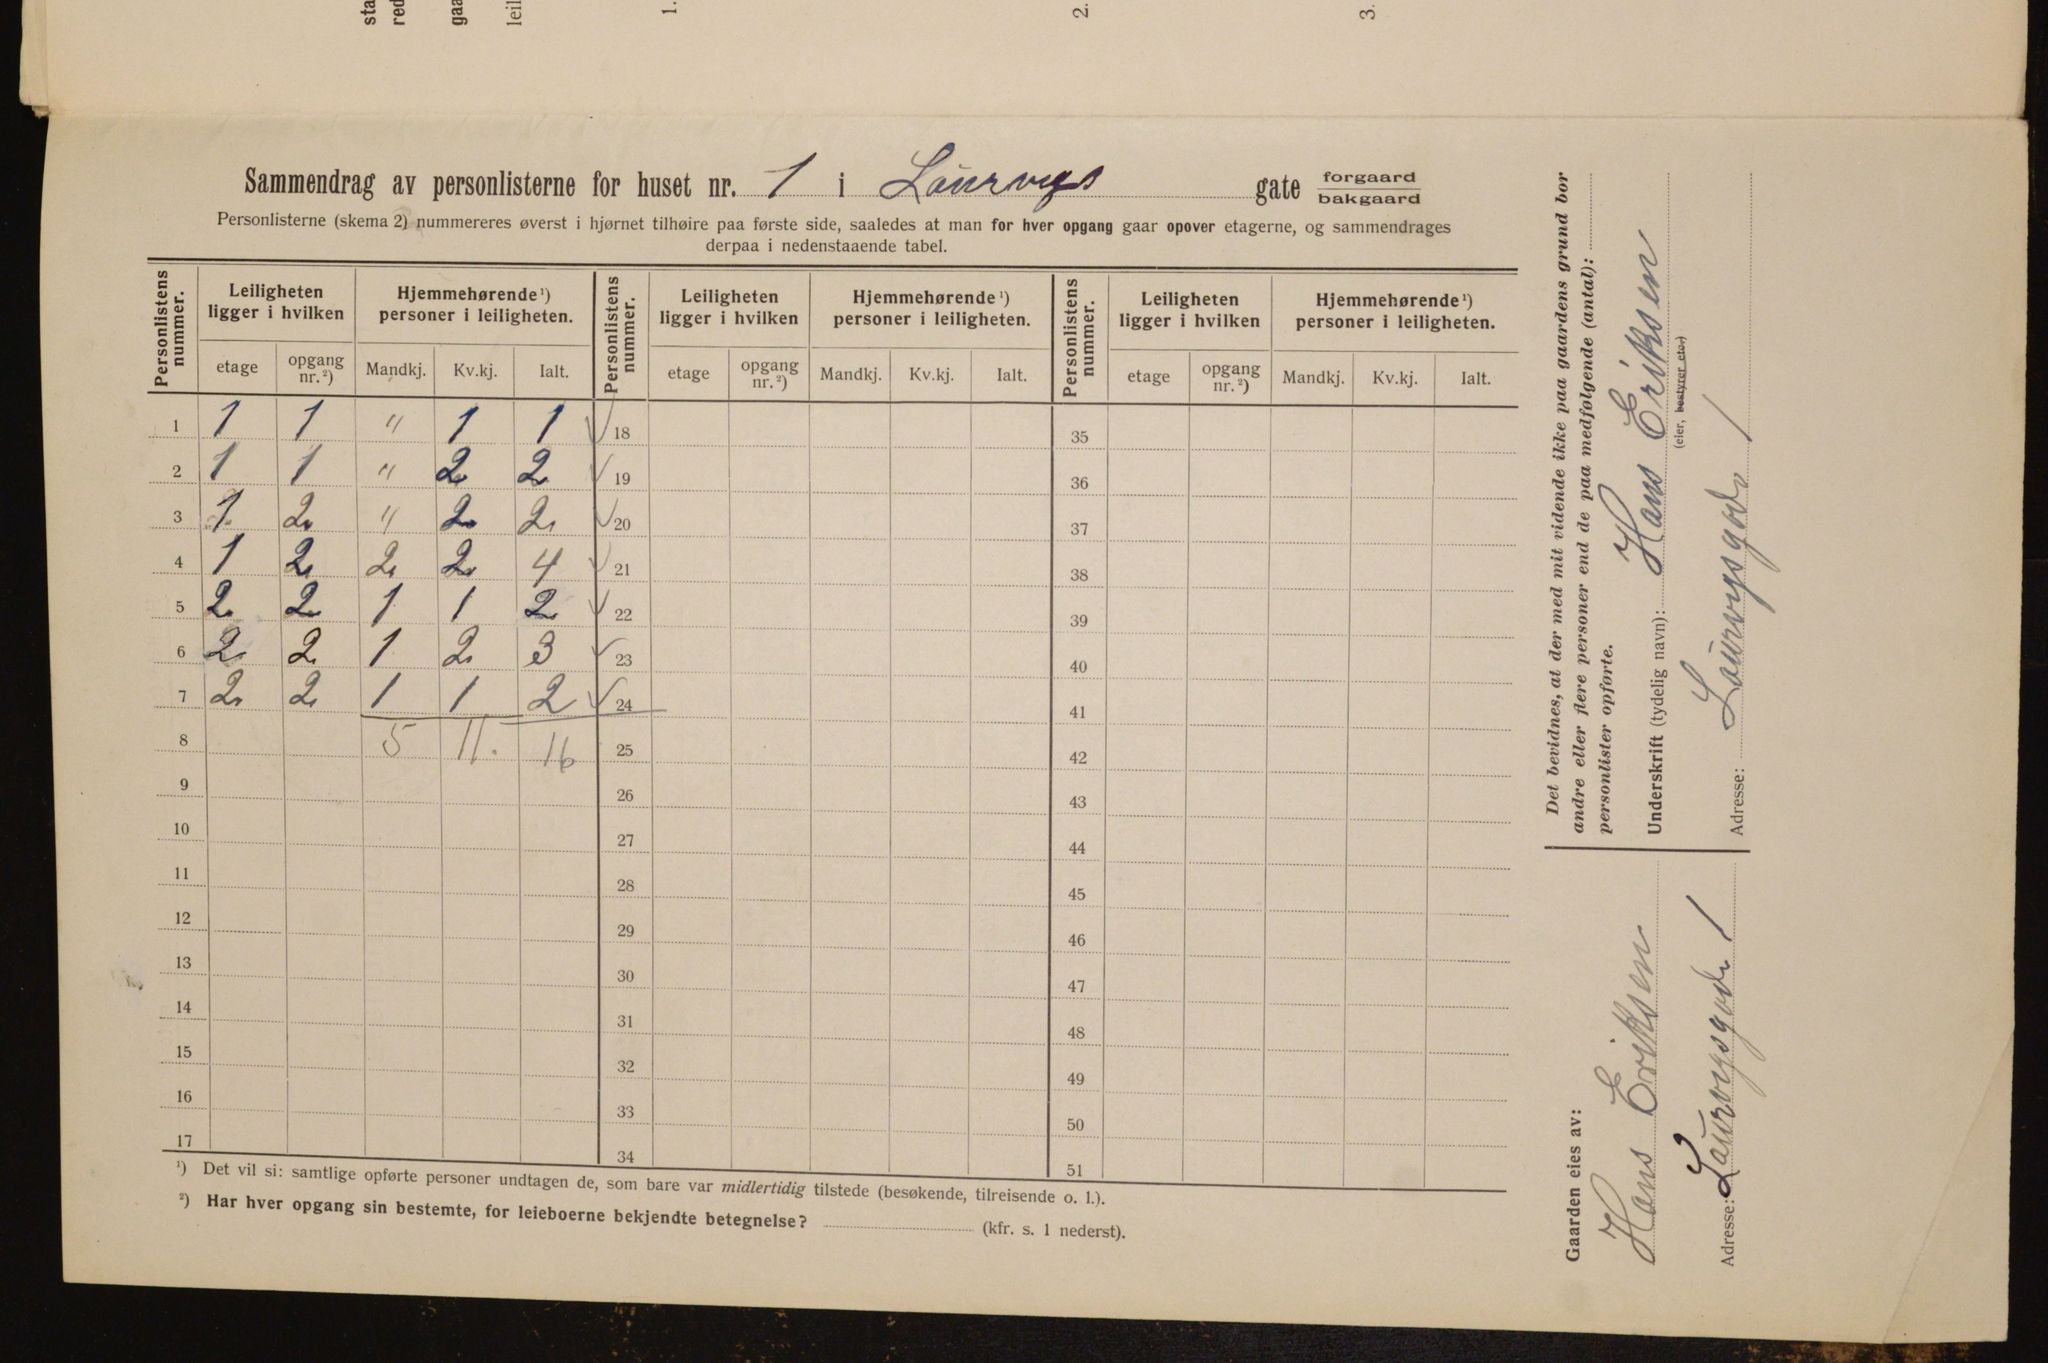 1. 2. 3.
Sammendrag av personlisterne for huset nr. 1 i Laurvigs gate forgaard
bakgaard
Personlisterne (skema 2) nummereres øverst i hjørnet tilhøire paa første side, saaledes at man for hver opgang gaar opover etagerne, og sammendrages
derpaa i nedenstaaende tabel.
Personlistens nummer. Leiligheten ligger i hvilken Hjemmehørende ¹) personer i leiligheten. Personlistens nummer. Leiligheten ligger i hvilken Hjemmehørende ¹) personer i leiligheten. Personlistens nummer. Leiligheten ligger i hvilken Hjemmehørende ¹) personer i leiligheten.
etage opgang nr. ²) Mandkj. Kv.kj. Ialt. etage opgang nr. ²) Mandkj. Kv.kj. Ialt. etage opgang nr. ²) Mandkj. Kv.kj. Ialt.
1 1 1 " 1 1 ✓ 18 35
2 1 1 " 2 2 ✓ 19 36
3 1 2 " 2 2 ✓ 20 37
4 1 2 2 2 4 ✓ 21 38
5 2 2 1 1 2 ✓ 22 39
6 2 2 1 2 3 ✓ 23 40
7 2 2 1 1 2 ✓ 24 41
8 5 11. 16 25 42
9 26 43
10 27 44
11 28 45
12 29 46
13 30 47
14 31 48
15 32 49
16 33 50
17 34 51
¹) Det vil si: samtlige opførte personer undtagen de, som bare var midlertidig tilstede (besøkende, tilreisende o. l.).
²) Har hver opgang sin bestemte, for leieboerne bekjendte betegnelse? (kfr. s. 1 nederst).
Det bevidnes, at der med mit vidende ikke paa gaardens grund bor
andre eller flere personer end de paa medfølgende (antal):
personlister opførte.
Underskrift (tydelig navn): Hans Eriksen
(eier, bestyrer etc.)
Adresse: Laurvigsgade 1
Gaarden eies av:
Hans Eriksen
Adresse: Laurvigsgade 1